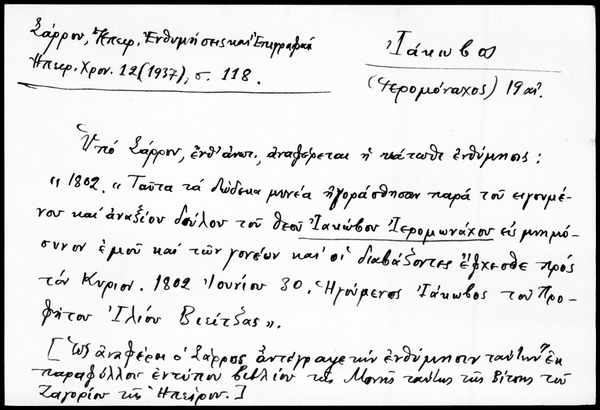 Σάρρου, Ἠπειρ. Ἐνθυμήσεις καὶ Ἐπιγραφαί
Ἠπειρ. Χρον. 12 (1937), σ. 118.
Ἰάκωβος
(Ἱερομόναχος) 19 αἰ.
Ὑπό Σάρρου, ἔνθ' ἀνωτ., ἀναφέρεται ἡ κάτωθι ἐνθύμησις:
"1802. "Ταῦτα τά δώδεκα μηνέα ἠγοράσθησαν παρά τοῦ ειγουμέ-
νου καί ἀναξίου δούλου τοῦ θεοῦ Ἰακώβου Ἱερομωνάχου εἰς μνημό-
συνον ἐμοῦ καί τῶν γονέων καί οἱ διαβάζοντες εὔχεσθε πρός
τόν Κυριον. 1802 Ἰουνίου 30. Ἡγούμενος Ἰάκωβος τοῦ Προ-
φήτου Ἰλιού Βιείτζας".
[Ὡς ἀναφέρει ὁ Σάρρος ἀντέγραψε τήν ἐνθύμησιν ταύτην ἐκ
παραφύλλου ἐντύπου βιβλίου τῆς Μονῆς ταύτης τῆς Βίτσης τοῦ
Ζαγορίου τῆς Ἠπείρου.]